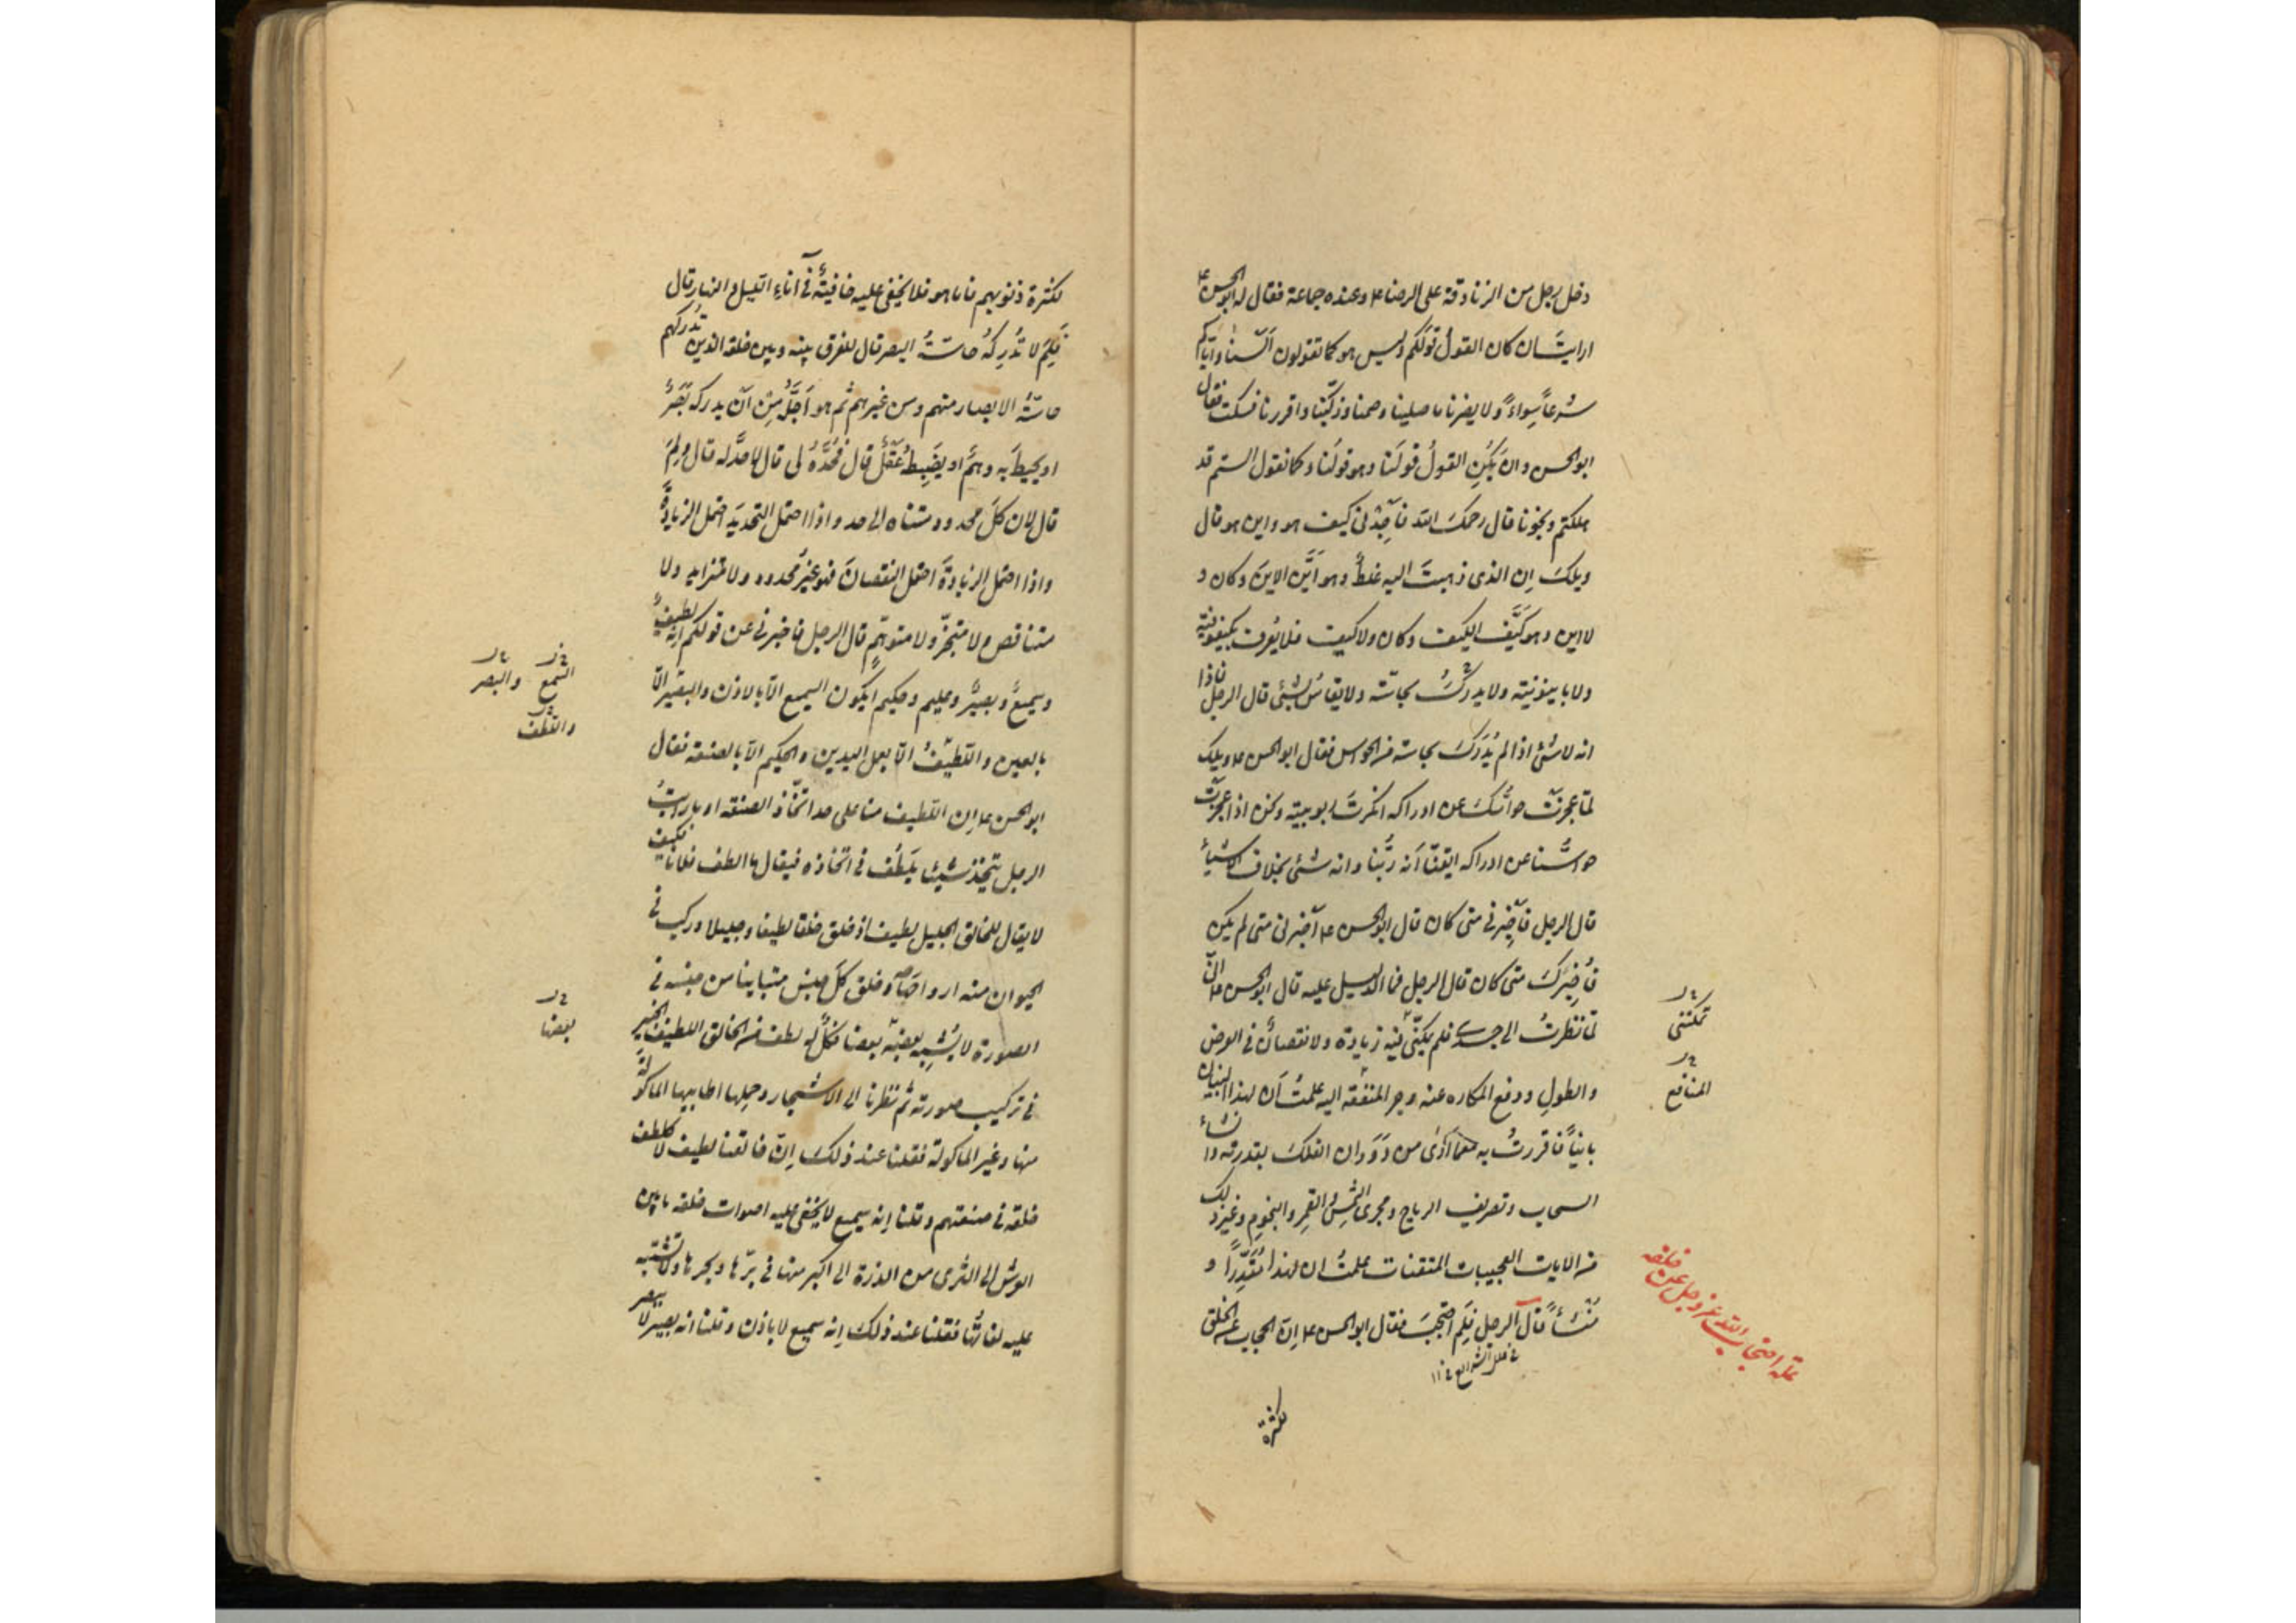 دخل رجل من الزنادقة على الرضا ع وعنده جماعة فقال له ابو الحسن ع
ارايت ان كان القول قولكم وليس هو كما تقولون ألسنا وايّاكم
شرعاً سواءً ولا يضرنا ما صلينا وصمنا وزكّينا واقررنا فسكت فقال
ابو الحسن وان يكن القولُ قولَنا وهو قولنا وكما نقول الستم قد
هلكتم ونجونا قال رحمك الله فأجِدْنى كيف هو واين هو قال
ويلك ان الذى ذهبتَ اليه غلطٌ وهو اَيَّن الاينَ وكان و
لا اين وهو كَيَّف الكيف وكان ولا كيف فلا يُعرف بكيفوفية
ولا باينونية ولا يدركُ بحاسّة ولا يقاسُ بشئ قال الرجل فاذا
انه لا شئ اذا لم يُدرَك بحاسة من الحواس فقال ابو الحسن ع ويلك
لمّا عجزتْ حواسُّك عن ادراكه انكرتَ ربوبيته ونحن اذا عجزت
حواسُّنا عن ادراكه ايقنّا اَنه ربُّنا وانه شئ بخلاف الاشياء
قال الرجل فأخبرنى متى كان قال ابو الحسن ع أخبرنى متى لم يكن
فأُخبِرَك متى كان قال الرجل فما الدليل عليه قال ابو الحسن ع انّى
لمّا نظرتُ الى جسدى فلم يمكنّى فيه زيادة ولا نقصانٌ فى العرض
تمكننى
والطول ودفع المكاره عنه وجر المنفعة اليه علمتُ أن لهذا البنيان
المنافع
بانياً فاقررتُ به مع ما أرى من دَوَران الفلك بقدرته وانشاء
السحاب وتصريف الرياح ومجرى الشمس والقمر والنجوم وغير ذلك
من الايات العجيبات المتقنات علمتُ ان لهذا مُقَدِّراً و
مُنشئاً قال الرجل فَلِمَ احتجبَ فقال ابو الحسن ع انّ الحجاب عن الخلق
علة احتجاب الله عز وجل عن خلقه
لكثرة
لكثرة ذنوبهم فاما هو فلا يخفى عليه خافيةٌ فى آناء الليل والنهار قال
فَلِمَ لا تُدرِكُه حاسّةُ البصر قال للفرق بينه وبين خلقه الذين تُدركهم
حاسّةُ الابصار منهم ومن غيرهم ثم هو اَجَلُّ مِن أن يدركه بَصَرٌ
او يحيطَ به وهمٌ او يضبطَه عقلٌ قال فحُدَّهُ لى قال لا حدَّ له قال ولِمَ
قال لان كلَّ محدود متناه الى حد واذا احتمل التحديدَ احتمل الزيادةَ
واذا احتمل الزيادةَ احتمل النقصانَ فهو غيرُ محدود ولا متزايد ولا
متناقص ولا متجزّ ولا متوهّمٍ قال الرجل فاخبرنى عن قولكم انه لطيفٌ
وسميعٌ وبصيرٌ وعليم وحكيم ايكون السميع الّا بالاذن والبصير الّا
السمع والبصر
واللطف
بالعين واللطيفُ الّا بعمل اليدين والحكيم الّا بالصنعة فقال
ابو الحسن ع ان اللطيف منا على حد اتّخاذ الصنعة او ما رايتَ
الرجل يتخذ شيئا يَلطُف فى اتخاذه فيقال ما الطف فلانا فكيف
لا يقال للخالق الجليل لطيف اذ خلق خلقا لطيفا وجليلا وركب فى
الحيوان منه ارواحَها وخلق كلّ جنس متباينا من جنسه فى
الصورة لا يُشبِه بعضُه بعضا فكلٌّ له لطف من الخالق اللطيف الخبير
بعضها
فى تركيب صورته ثم نظرنا الى الاشجار وحملها اطايبها الماكولة
منها وغير الماكولة فقلنا عند ذلك اِنّ خالقنا لطيف لا كلطف
خلقه فى صنعتهم وقلنا اِنه سميع لا يخفى عليه اصوات خلقه ما بين
العرش الى الثرى من الذرة الى اكبر منها فى برّها وبحرها ولا تشتبه
عليه لغاتُها فقلنا عند ذلك اِنه سميع لا باذن وقلنا انه بصيرٌ لا ببصر